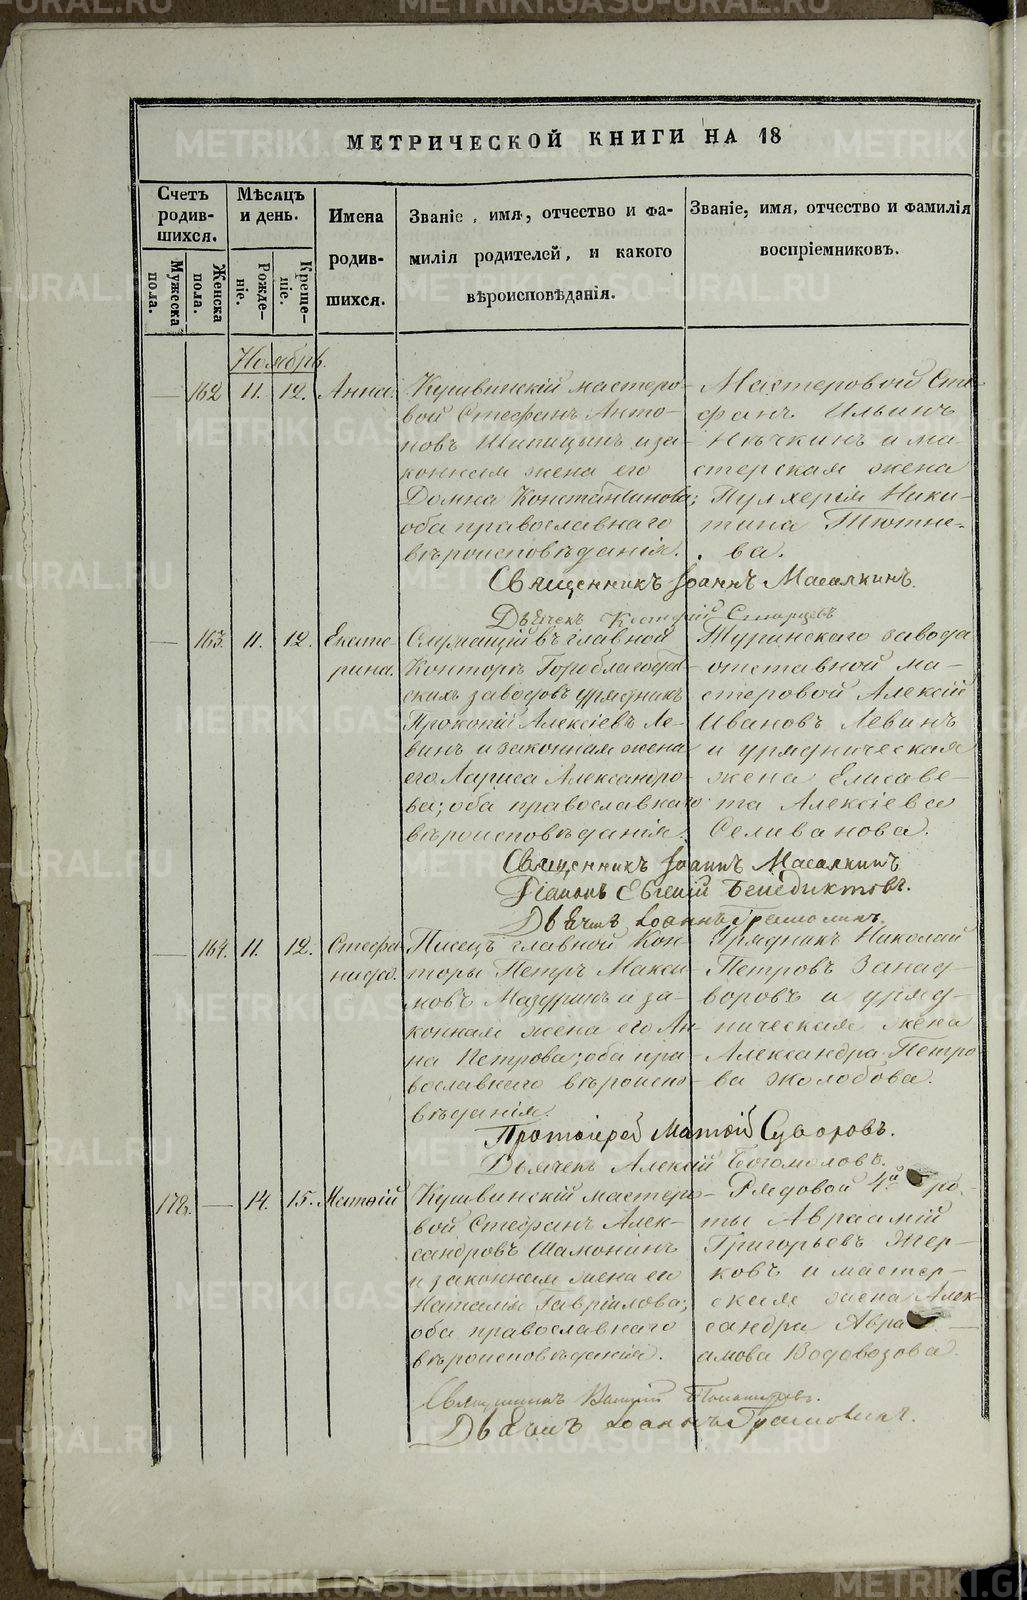 МЕТРИЧЕСКОЙ КНИГИ НА 18
Счетъ родившихся.
Мужеска пола.
Женска пола.
Мѣсяцъ и день.
Рожденіе.
Крещеніе.
Имена родившихся.
Званіе, имя, отчество и фамилія родителей, и какого вѣроисповѣданія.
Званіе, имя, отчество и фамилія воспріемниковъ.
Ноябрь.
— 162 11. 12. Анна.
Кушвинскій мастеро-
вой Стефанъ Анто-
новъ Шипицынъ и за-
конная жена его
Домна Константинова;
оба православнаго
вѣроисповѣданія.
Мастеровой Сте-
фанъ Ильинъ
и ма-
стерская жена
Пулхерія Ники-
тина Тютне-
ва.
Священникъ Іоаннъ Масалкинъ.
Дьячекъ Старцевъ
— 163. 11. 12. Екате-
рина.
Служащій въ главной
Конторѣ Гороблагодат-
скихъ заводовъ урядникъ
Прокопій Алексіевъ Ле-
винъ и законная жена
его Лариса Александро-
ва; оба православнаго
вѣроисповѣданія.
Туринскаго завода
отставной ма-
стеровой Алексій
Ивановъ Левинъ
и урядническая
жена Елисаве-
та Алексіева
Селиванова.
Священникъ Іоаннъ Масалкинъ
Діаконъ Евгеній Бенедиктовъ.
Дьячекъ Іоаннъ Грамолинъ.
— 164. 11. 12. Стефа-
нида.
Писецъ главной Кон-
торы Петръ Макси-
мовъ Мазуринъ и за-
конная жена его Ан-
на Петрова; оба пра-
вославнаго вѣроиспо-
вѣданія.
Урядникъ Николай
Петровъ Занад-
воровъ и уряд-
ническая жена
Александра Петро-
ва Жолобова.
Протоіерей Матѳій Суворовъ.
Дьячекъ Алексій Богомоловъ.
178. — 14. 15. Матѳій
Кушвинскій мастеро-
вой Стефанъ Алек-
сандровъ Шамонинъ
и законная жена его
Наталія Гавріилова;
оба православнаго
вѣроисповѣданія.
Рядовой 4й ро-
ты Авраамій
Григорьевъ Жер-
ковъ и мастер-
ская жена Алек-
сандра Авра-
амова Водовозова.
Священникъ
Дьячекъ Іоаннъ
METRIKI.GASO-URAL.RU